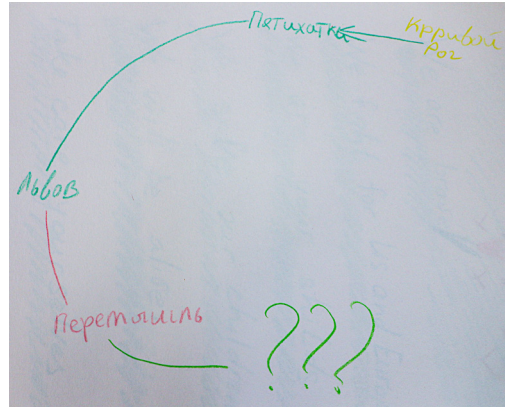 Пятихатка
Крривой
Рог
Львов
Перемышль
???